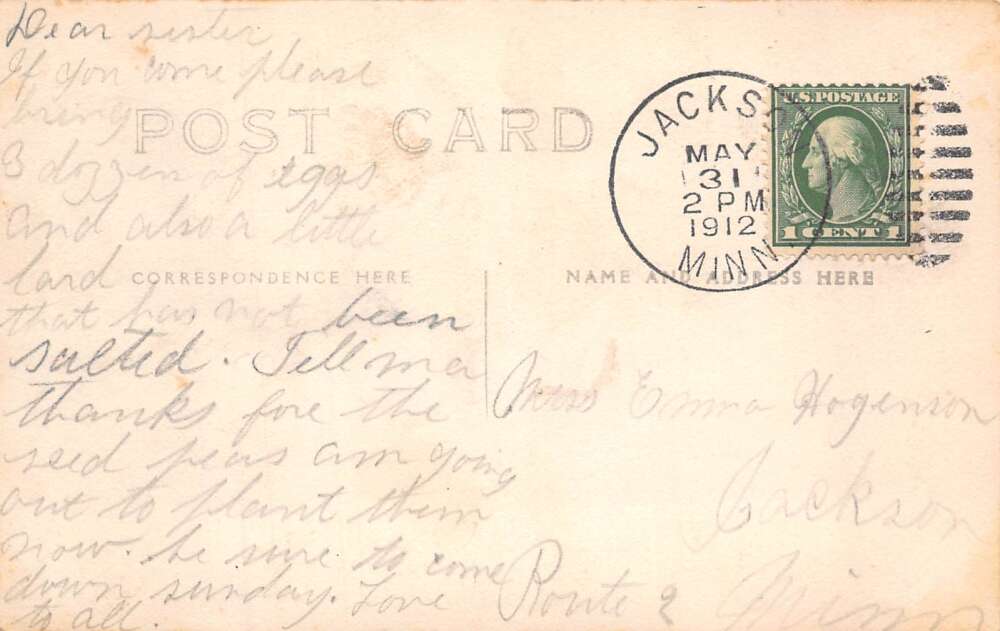 Dear sister
If you come please
bring
3 dozzen of eggs
and also a little
lard
that has not been
salted. Tell ma
thanks fore the
seed peas am going
out to plant them
now. be sure to come
down sunday. Love
to all.
POST CARD
CORRESPONDENCE HERE
NAME AND ADDRESS HERE
JACKSON
MAY
31
2 PM
1912
MINN.
U.S. POSTAGE
1 CENT 1
Miss Emma Hogenson
Jackson
Route 2 Minn